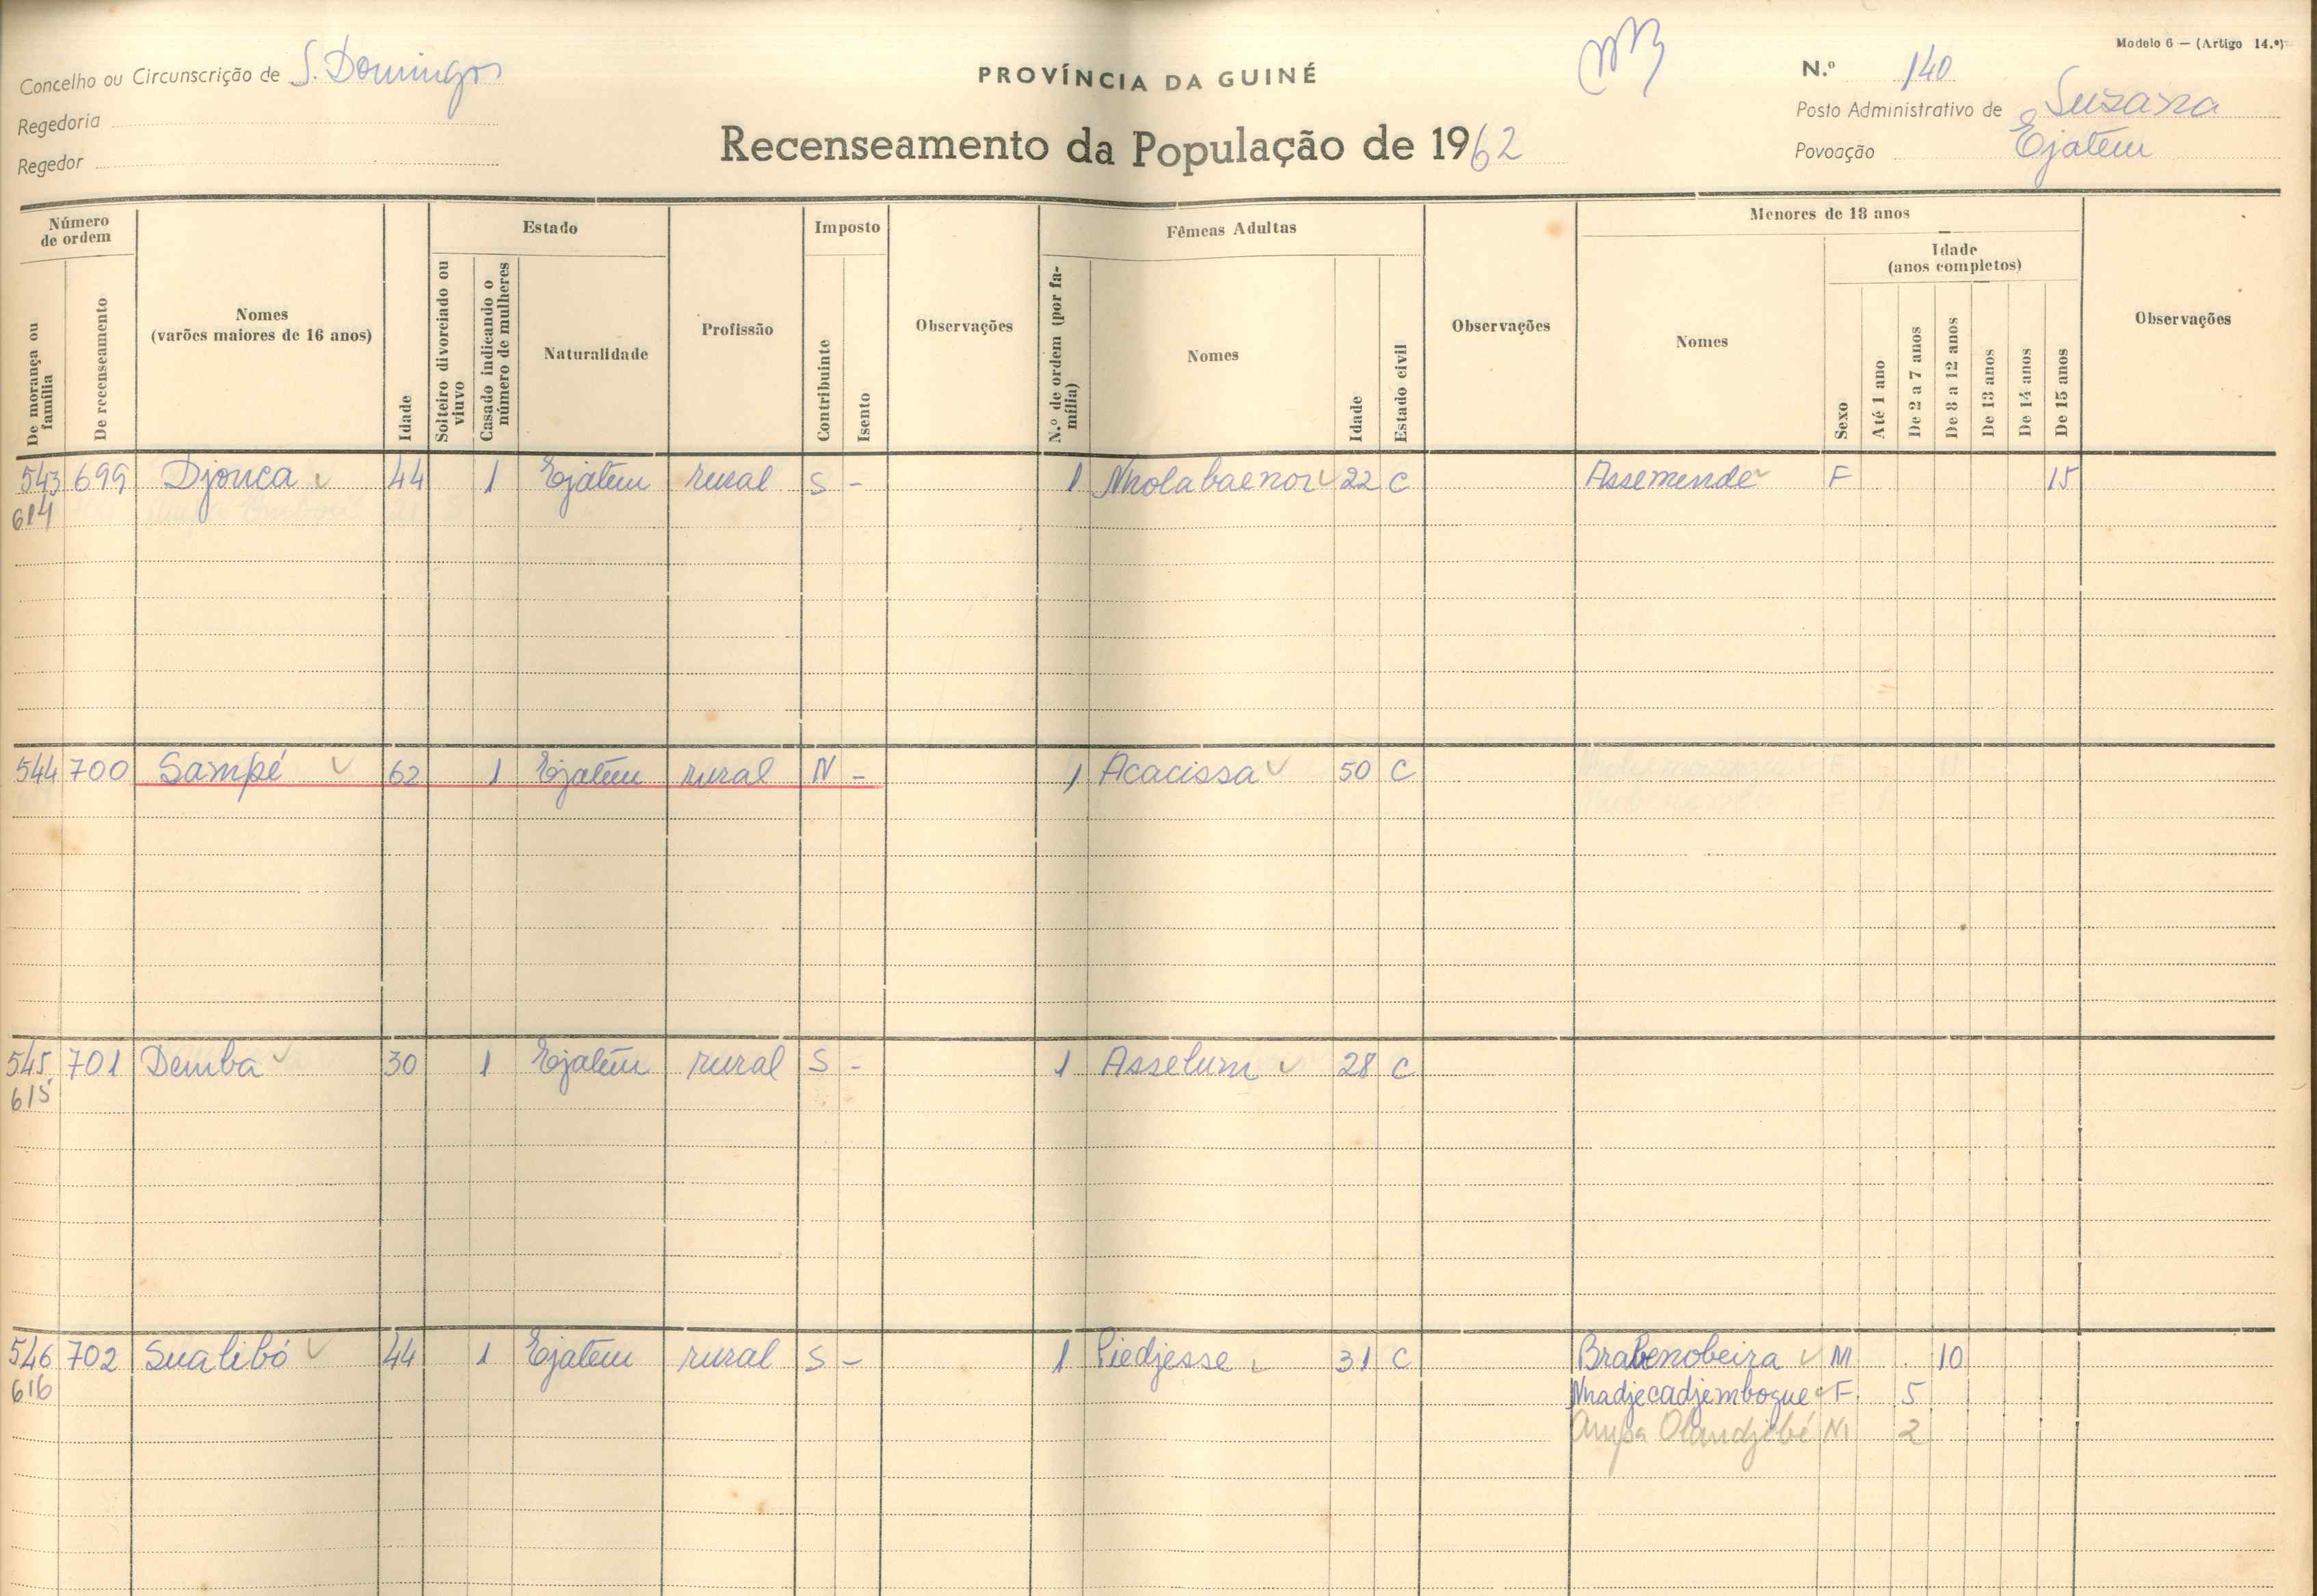 Modelo 6 — (Artigo 14.º)
Concelho ou Circunscrição de S. Domingos
PROVÍNCIA DA GUINÉ
N.º 140
Regedoria
Posto Administrativo de Suzana
Regedor
Recenseamento da População de 1962
Povoação Ejatem
Número de ordem
De morança ou família
De recenseamento
Nomes
(varões maiores de 16 anos)
Idade
Estado
Solteiro divorciado ou viuvo
Casado indicando o número de mulheres
Naturalidade
Profissão
Imposto
Contribuinte
Isento
Observações
Fêmeas Adultas
N.º de ordem (por família)
Nomes
Idade
Estado civil
Observações
Menores de 18 anos
Nomes
Sexo
Idade
(anos completos)
Até 1 ano
De 2 a 7 anos
De 8 a 12 anos
De 13 anos
De 14 anos
De 15 anos
Observações
543 699 Djonca 44 1 Ejatem rural S - 1 Nholabaenor 22 C Assemende F 15
614
544 700 Sampé 62 1 Ejatem rural N - 1 Acacissa 50 C
545 701 Demba 30 1 Ejatem rural S - 1 Asselum 28 C
615
546 702 Sualibó 44 1 Ejatem rural S - 1 Piedjesse 31 C Brabenobeira M 10
616 Nhadjecadjemboque F 5
Olandjebé M 2